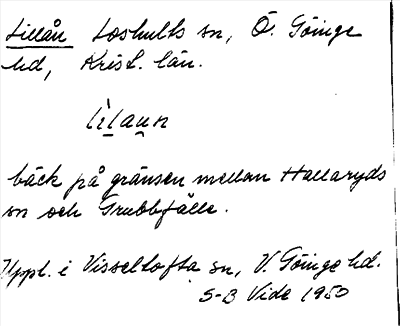 Lillån Loshults sn, Ö. Göinge
hd, Krist. län.
lìlaun
bäck på gränsen mellan Hallaryds
sn och Grubbfälle.
Uppt. i Visseltofta sn, V. Göinge hd.
S-B Vide 1950